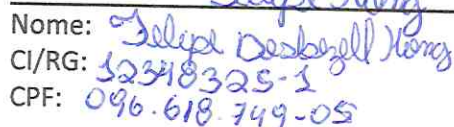 Nome: Felipe Desbezell Kong
CI/RG: 12348325-1
CPF: 096.618.749-05